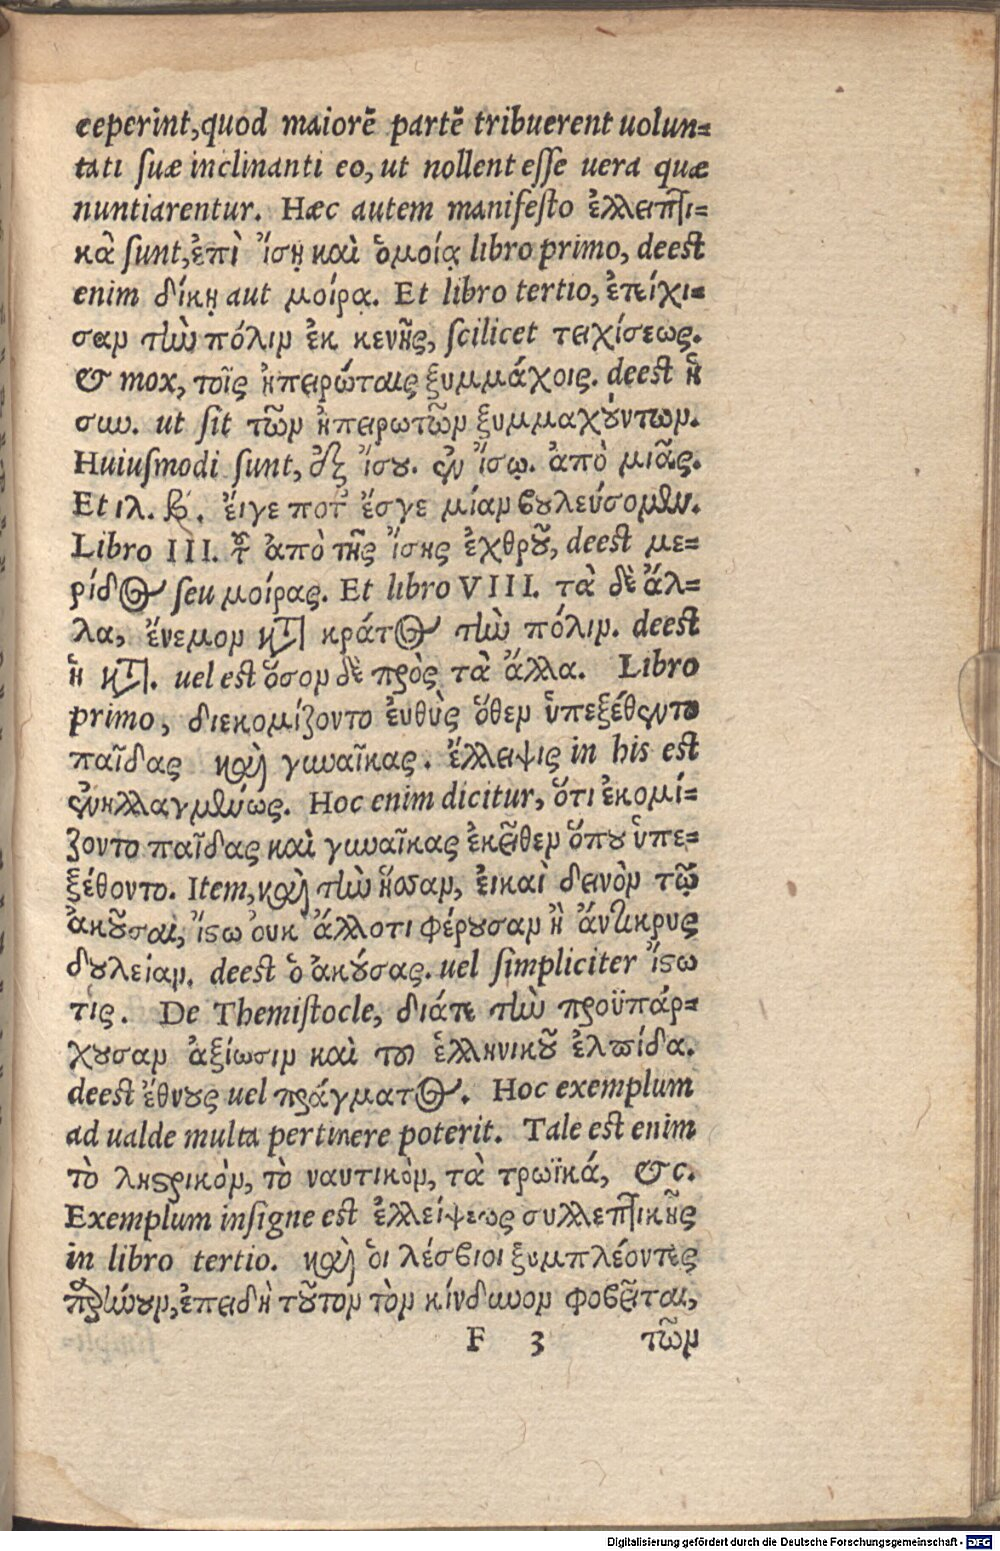 ceperint, quod maiorē partē tribuerent uolun=
tati suæ inclinanti eo, ut nollent esse uera quæ
nuntiarentur. Hæc autem manifesto ἐλλειπτι=
κὰ sunt, ἐπὶ ἴσῃ καὶ ὁμοίᾳ libro primo, deest
enim δίκῃ aut μοίρᾳ. Et libro tertio, ἐπείχι=
σαν τὴν πόλιν ἐκ κενῆς, scilicet τειχίσεως.
& mox, τοῖς ἠπειρώταις ξυμμάχοις. deest ἢ
σιω. ut sit τῶν ἠπειρωτῶν ξυμμαχούντων.
Huiusmodi sunt, ἐξ ἴσου. ἐν ἴσῳ. ἀπὸ μιᾶς.
Et ιλ. β. ἔιγε ποτ ἔσγε μίαν βουλεύσομεν.
Libro III. ἀπὸ τῆς ἴσης ἐχθροῦ, deest με=
ρίδος seu μοίρας. Et libro VIII. τὰ δὲ ἄλ=
λα, ἔνεμον κατὰ κράτος τὴν πόλιν. deest
ἢ κατὰ. uel est ὅσον δὲ πρὸς τὰ ἄλλα. Libro
primo, διεκομίζοντο ἐυθὺς ὅθεν ὑπεξέθεντο
παῖδας καὶ γυναῖκας. ἔλλειψις in his est
ἐνηλλαγμένως. Hoc enim dicitur, ὅτι ἐκομί=
ζοντο παῖδας καὶ γυναῖκας ἐκεῖθεν ὅπου ὑπε=
ξέθοντο. Item, καὶ τὴν ἧσσαν, ἐικαὶ δεινὸν τῷ
ἀκοῦσαι, ἴστω ὀυκ ἄλλοτι φέρουσαν ἢ ἄντικρυς
δουλείαν. deest ὁ ἀκούσας. uel simpliciter ἴστω
τις. De Themistocle, διάτε τὴν προϋπάρ=
χουσαν ἀξίωσιν καὶ του ἑλληνικοῦ ἐλπίδα.
deest ἔθνους uel πράγματος. Hoc exemplum
ad ualde multa pertinere poterit. Tale est enim
τὸ ληστρικόν, τὸ ναυτικὸν, τὰ τρωϊκά, &c.
Exemplum insigne est ἐλλείψεως συλλεπτικῆς
in libro tertio. καὶ ὁι λέσβιοι ξυμπλέοντες
παρῄνουν, ἐπειδὴ τοῦτον τὸν κίνδυνον φοβεῖται,
F 3 τῶν
Digitalisierung gefördert durch die Deutsche Forschungsgemeinschaft - DFG